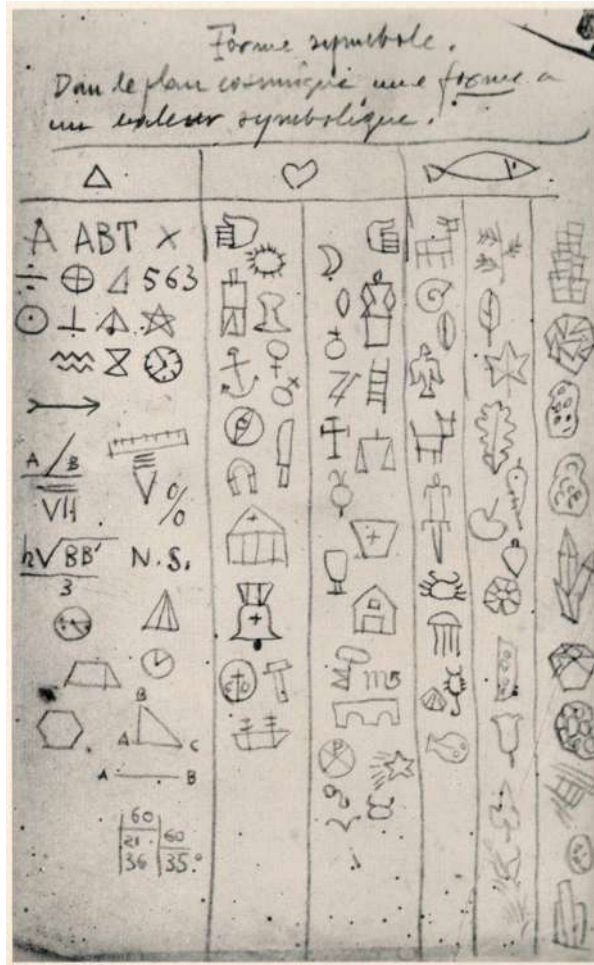 Forme symbole.
Dan le plan cosmique une forme a
un valeur symbolique.
A ABT X
÷ ⊕ 563
⊙ ⊥
A / B
VII
%
h√BB' N.S.
3
B
A C
A B
60
21 60
36 35.°